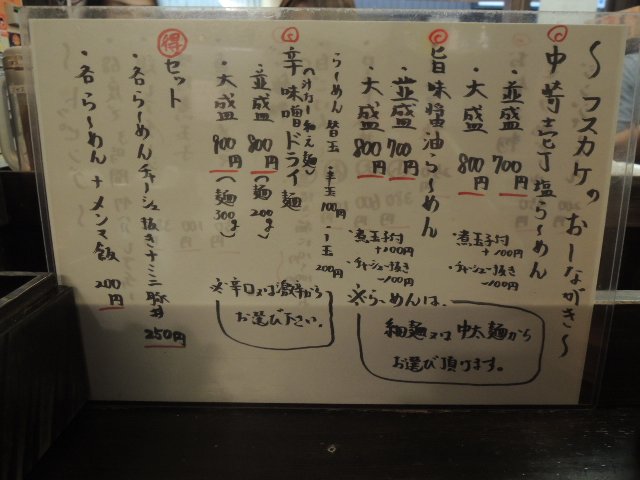 〜フスカケのおしながき〜
中華壱丁塩らーめん
・並盛 700円
・大盛 800円
煮玉子付 +100円
・チャーシュー抜き -100円
旨味醤油らーめん
・並盛 700円
・大盛 800円
・煮玉子付 +100円
・チャーシュー抜き -100円
※らーめんは、
細麺又は中太麺から
お選び頂けます。
らーめん替玉 ・半玉 100円 ・1玉 200円
辛味噌ドライ麺
(汁なし和え麺)
・並盛 800円(麺200g)
・大盛 900円(麺300g)
※辛口又は激辛から
お選び下さい。
得 セット
・各らーめんチャーシュー抜き+ミニ豚丼 250円
・各らーめん+メンマ飯 200円